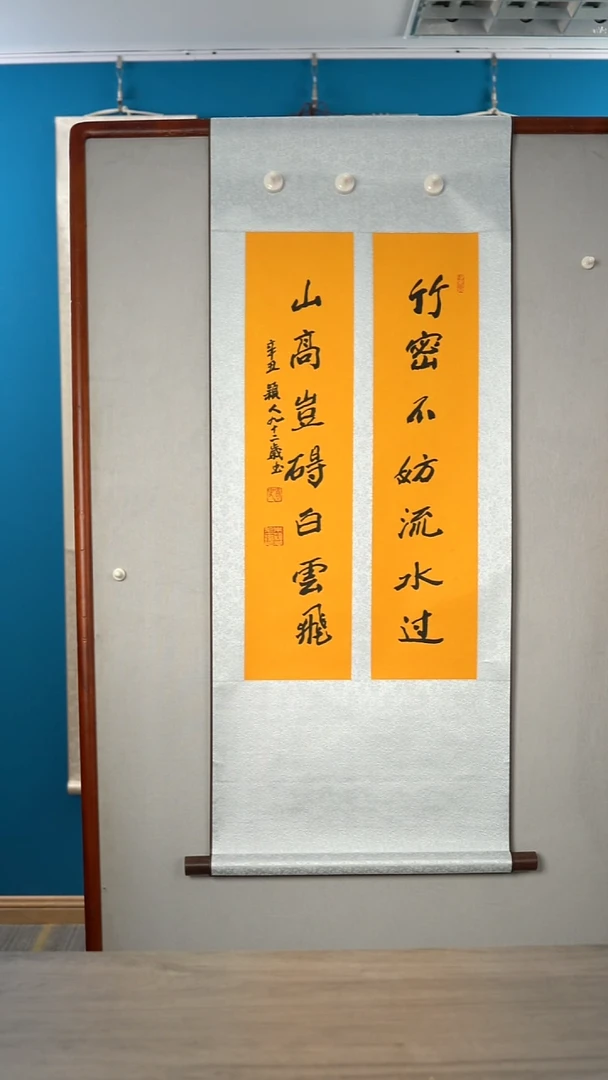 竹密不妨流水过
山高豈碍白雲飛
辛丑 颖人九十二歲书